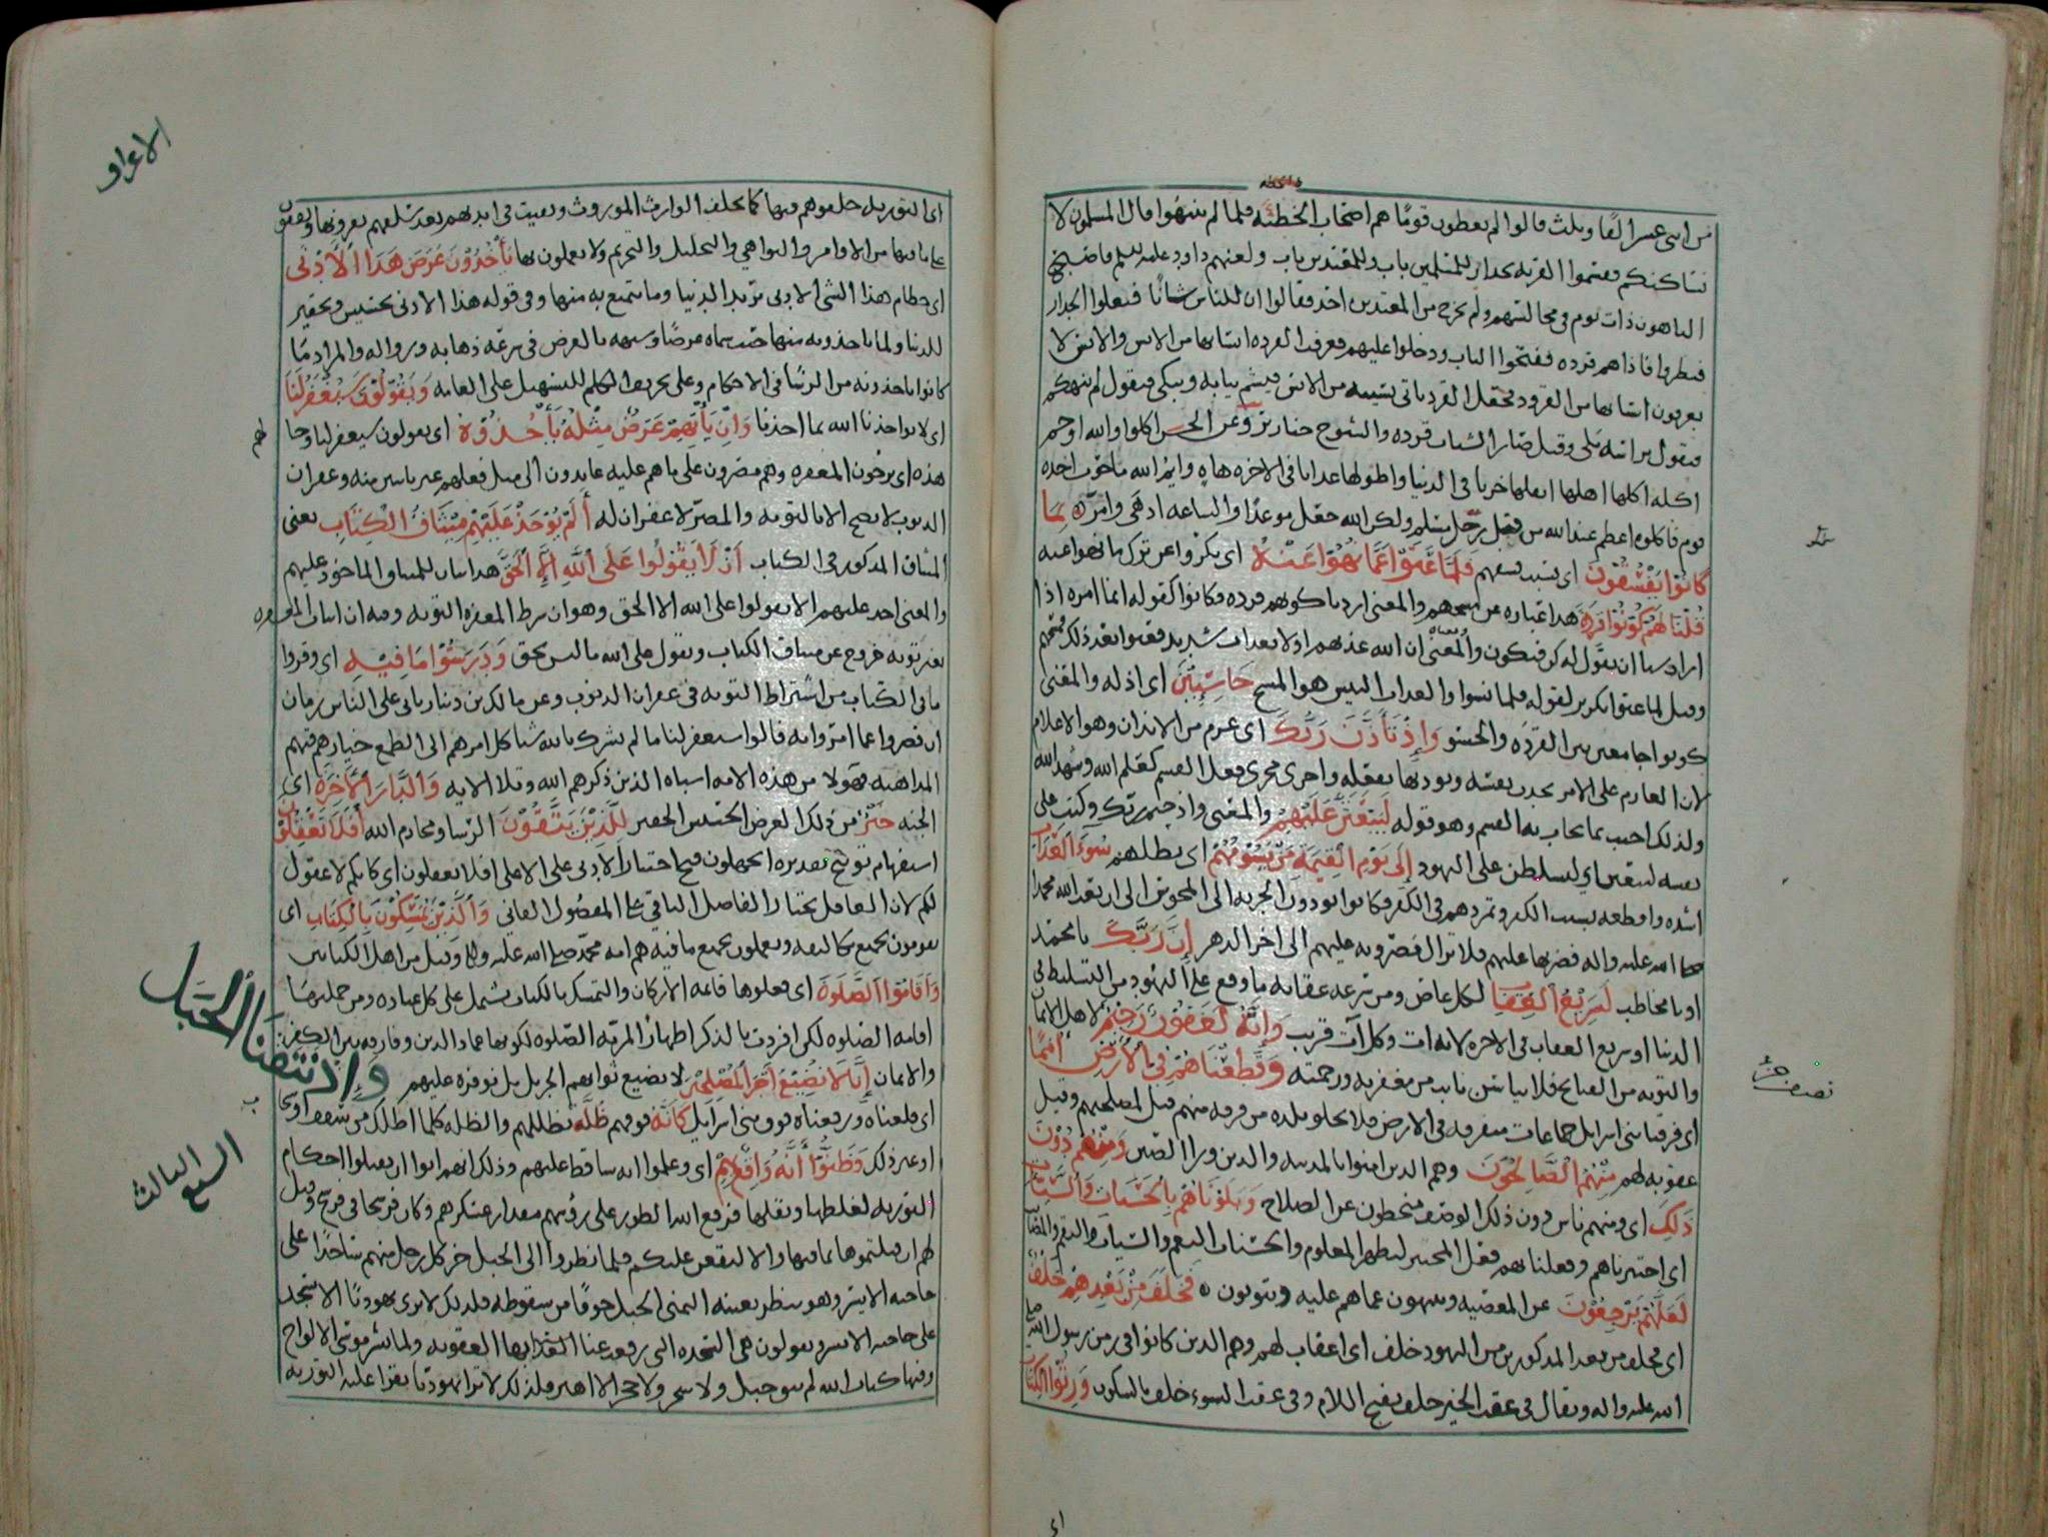 من اثنى عشر الفا وثلث قالوا لم تعظون قومًا هم اصحاب الخطئة فلما لم ينتهوا قال المسلمون لا
نساكنكم فقسموا القريه بجدار للمسلمين باب وللمعتدين باب ولعنهم داود عليه السلم فاصبح
الناهون ذات يوم فى مجالسهم ولم يخرج من المعتدين احد فقالوا ان للناس شأنًا فعلوا الجدار
فنظروا فاذا هم قرده ففتحوا الباب ودخلوا عليهم فعرفت القرده انسابها من الانس والانس لا
يعرفون انسابها من القرود فجعل القرد ياتى نسيبه من الانس فيشم ثيابه ويبكى فيقول لم ننهكم
فيقول براسه بلى وقيل صار الشباب قرده والشيوخ خنازير وعن الحسن اكلوا والله اوخم
اكله اكلها اهلها اثقلها خزيا فى الدنيا واطولها عذابا فى الاخره هاه وايم الله ما حوت اخذه
قوم فاكلوه اعظم عند الله من قتل رجل مسلم ولكن الله جعل موعدًا والساعه ادهى وامر بِمَا
كَانُوا يَفْسُقُونَ اى بسبب فسقهم فَلَمَّا عَتَوْا عَمَّا نُهُوا عَنْهُ اى تكبروا عن ترك ما نهوا عنه
قُلْنَا لَهُمْ كُونُوا قِرَدَةً هذا عباره عن مسخهم والمعنى اردنا كونهم قرده فكانوا كقوله انما امره اذا
اراد شيا ان يقول له كن فيكون والمعنى ان الله عذبهم اولا بعذاب شديد فعتوا بعد ذلك فمسخهم
وقيل لما عتوا تكرير لقوله فلما نسوا والعذاب البئيس هو المسخ خَاسِئِينَ اى اذله والمعنى
كونوا جامعين بين القرده والخسو وَإِذْ تَأَذَّنَ رَبُّكَ اى عزم من الايذان وهو الاعلام
لان العازم على الامر يحدث نفسه ويوذنها بفعله واجرى مجرى فعل القسم كعلم الله وشهد الله
ولذلك اجيب بما يجاب به القسم وهو قوله لَيَبْعَثَنَّ عَلَيْهِمْ والمعنى واذ حتم ربك وكتب على
نفسه ليبعثن اى ليسلطن على اليهود إِلَى يَوْمِ الْقِيَمَةِ مَنْ يَسُومُهُمْ اى يطلبهم سُوءَ الْعَذَابِ
اشده وافظعه بسبب الكفر وتمردهم فى الكفر وكانوا يودون الجزيه الى المجوس الى ان بعث الله محمدا
صلى الله عليه واله فضربها عليهم فلا تزال مضروبه عليهم الى اخر الدهر إِنَّ رَبَّكَ يا محمد
او يا مخاطب لَسَرِيعُ الْعِقَابِ لكل عاص ومن سرعه عقابه ما وقع على اليهود من التسليط فى
الدنيا او سريع العقاب فى الاخره لانه ات وكل آت قريب وَإِنَّهُ لَغَفُورٌ رَحِيمٌ لاهل الايمان
والتوبه من القبايح فلا ييأسن تايب من مغفرته ورحمته وَقَطَّعْنَاهُمْ فِي الْأَرْضِ أُمَمًا
اى فرقنا بنى اسرايل جماعات متفرقه فى الارض فلا يخلو بلده من فرقه منهم قيل لمصلحتهم وقيل
عقوبه لهم مِنْهُمُ الصَّالِحُونَ وهم الذين امنوا بالمدينه والذين ورا الصين وَمِنْهُمْ دُونَ
ذَلِكَ اى ومنهم ناس دون ذلك الوصف منحطون عن الصلاح وَبَلَوْنَاهُمْ بِالْحَسَنَاتِ وَالسَّيِّئَاتِ
اى اختبرناهم وفعلنا بهم فعل المختبر ليظهر المعلوم والحسنات النعم والسيات النقم والمصايب
لَعَلَّهُمْ يَرْجِعُونَ عن المعصيه وينتهون عما هم عليه ويتوبون فَخَلَفَ مِنْ بَعْدِهِمْ خَلْفٌ
اى فخلف من بعد المذكورين من اليهود خلف اى اعقاب لهم وهم الذين كانوا فى زمن رسول الله صلى
الله عليه واله ويقال فى عقب الخير خلف بفتح اللام وفى عقب السوء خلف بالسكون وَرِثُوا الْكِتَابَ
نصف حزب
الاعراف
اى التوريه خلفوهم فيها كما يخلف الوارث الموروث وبقيت فى ايديهم بعد سلفهم يقرونها ويقفون
على ما فيها من الاوامر والنواهي والتحليل والتحريم ولا يعملون بها يَأْخُذُونَ عَرَضَ هَذَا الْأَدْنَى
اى حطام هذا الشى الادنى يريد الدنيا وما يتمتع به منها وفى قوله هذا الادنى تخسيس وتحقير
للدنيا ولما ياخذونه منها حيث سماه عرضًا وشبهه بالعرض فى سرعه ذهابه وزواله والمراد ما
كانوا ياخذونه من الرشا فى الاحكام وعلى تحريف الكلم للتسهيل على العامه وَيَقُولُونَ سَيُغْفَرُ لَنَا
اى لا يواخذنا الله بما اخذنا وَإِنْ يَأْتِهِمْ عَرَضٌ مِثْلُهُ يَأْخُذُوهُ اى يقولون سيغفر لنا وحا
لهم
هذه اى يرجون المغفره وهم مصرون على ما هم عليه عايدون الى مثل فعلهم غير تايبين منه وغفران
الذنوب لا يصح الا بالتوبه والمصر لا غفران له أَلَمْ يُؤْخَذْ عَلَيْهِمْ مِيثَاقُ الْكِتَابِ يعنى
الميثاق المذكور فى الكتاب أَنْ لَا يَقُولُوا عَلَى اللَّهِ إِلَّا الْحَقَّ هذا بيان للميثاق الماخوذ عليهم
والمعنى اخذ عليهم الا يقولوا على الله الا الحق وهو ان شرط المغفره التوبه وفيه ان اثبات المغفره
بغير توبه خروج عن ميثاق الكتاب وتقول على الله ما ليس بحق وَدَرَسُوا مَا فِيهِ اى وقروا
ما فى الكتاب من اشتراط التوبه فى غفران الذنوب وعن مالك بن دينار ياتى على الناس زمان
ان قصروا عما امروا به قالوا سيغفر لنا ما لم نشرك بالله شيا كل امرهم الى الطمع خيارهم فيهم
المداهنه فهولا من هذه الامه اشباه الذين ذكرهم الله وتلا الايه وَالدَّارُ الْآخِرَةُ اى
الجنه خَيْرٌ من ذلك العرض الخسيس الحقير لِلَّذِينَ يَتَّقُونَ الرشا ومحارم الله أَفَلَا تَعْقِلُونَ
استفهام توبيخ تقديره اتجهلون قبح اختيار الادنى على الاعلى افلا تعقلون اى كانكم لا عقول
لكم لان العاقل يختار الفاضل الباقى على المفضول الفانى وَالَّذِينَ يُمَسِّكُونَ بِالْكِتَابِ اى
يومنون بجميع تكاليفه ويعملون بجميع ما فيه هم امه محمد صلى الله عليه واله وقيل من اهل الكتابين
وَأَقَامُوا الصَّلَوةَ اى فعلوها قايمه الاركان والتمسك بالكتاب يشتمل على كل عباده ومن جملتها
اقامه الصلوه لكن افردت بالذكر اظهارا لمزيه الصلوه لكونها عماد الدين وفارقه بين الكفر
والايمان إِنَّا لَا نُضِيعُ أَجْرَ الْمُصْلِحِينَ لا نضيع ثوابهم الجزيل بل نوفره عليهم
وَإِذْ نَتَقْنَا الْجَبَلَ
اى قلعناه ورفعناه فوق بنى اسرايل كَأَنَّهُ فوقهم ظُلَّةٌ تظللهم والظله كلما اظلك من سقف او سحا
ب
او غير ذلك وَظَنُّوا أَنَّهُ وَاقِعٌ بِهِمْ اى وعلموا انه ساقط عليهم وذلك انهم ابوا ان يقبلوا احكام
السبع الثالث
التوريه لغلظها وثقلها فرفع الله الطور على رؤسهم مقدار عسكرهم وكان فرسخا فى فرسخ وقيل
لهم ان قبلتموها بما فيها والا ليقعن عليكم فلما نظروا الى الجبل خر كل رجل منهم ساجدًا على
حاجبه الايسر وهو ينظر بعينه اليمنى الى الجبل خوفًا من سقوطه فلذلك لا ترى يهوديًا الا يسجد
على حاجبه الايسر ويقولون هى السجده التى رفعت عنا بها العقوبه ولما نشر موسى الالواح
وفيها كتاب الله لم يبق جبل ولا شجر ولا حجر الا اهتز فلذلك لا ترا يهوديًا يقرا عليه التوريه